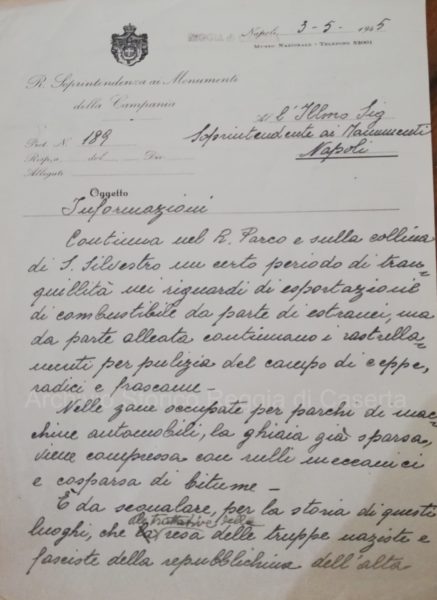 REGGIA di CASERTA
Napoli, 3-5-1945
Museo Nazionale - Telefono
R. Soprintendenza ai Monumenti
della Campania
Al l'Illmo Sig
Soprintendente ai Monumenti
Napoli
Prot. N. 189
Risp. a del Div.
Allegati
Oggetto
Informazioni
Continua nel R. Parco e sulla collina
di S. Silvestro un certo periodo di tran=
quillità nei riguardi di esportazione
di combustibile da parte di estranei, ma
da parte alleata continuano i rastrella=
menti per pulizia del campo di ceppe,
radici e frascame -
Archivio Storico Reggia di Caserta
Nelle zone occupate per parchi di mac=
chine automobili, la ghiaia già sparsa,
viene compressa con rulli meccanici
e cosparsa di bitume -
È da segnalare, per la storia di questi
le trattative della
luoghi, che la resa delle truppe naziste e
fasciste della repubblichina dell'alta